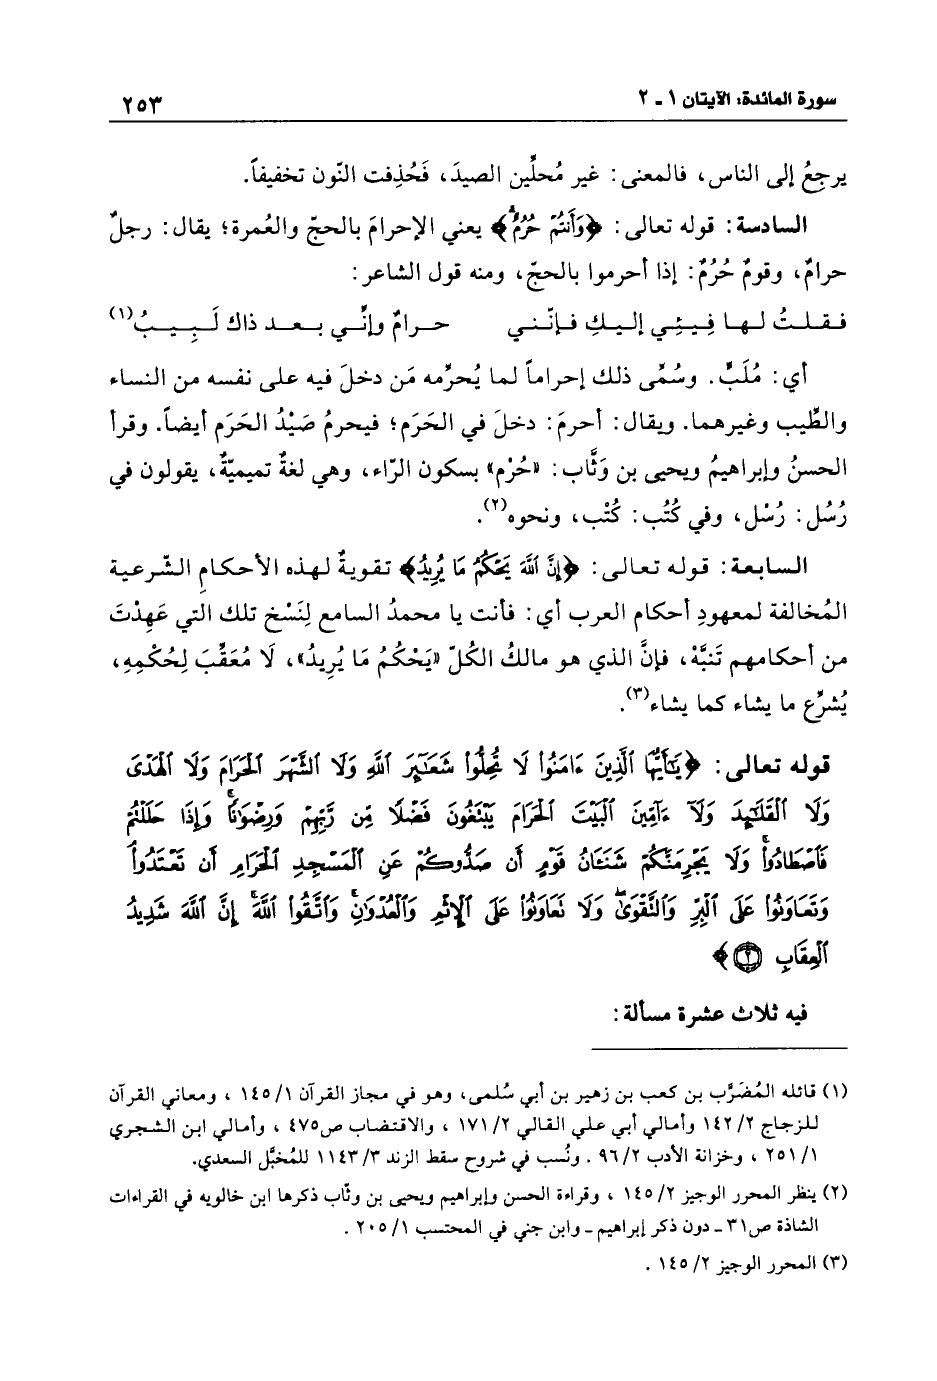 سورة المائدة: الآيتان ١ - ٢
٢٥٣
يرجعُ إلى الناس، فالمعنى: غير مُحلِّين الصيدَ، فَحُذِفت النّون تخفيفاً.
السادسة: قوله تعالى: ﴿وَأَنتُمْ حُرُمٌ﴾ يعني الإحرامَ بالحجّ والعُمرة؛ يقال: رجلٌ
حرامٌ، وقومٌ حُرُمٌ: إذا أحرموا بالحجّ، ومنه قول الشاعر:
فـقـلـتُ لـهـا فِـيـئِـي إلـيـكِ فـإنّـنـي حـرامٌ وإنِّـي بـعـد ذاك لَـبِـيـبُ(١)
أي: مُلَبٍّ. وسُمِّى ذلك إحراماً لما يُحرِّمه مَن دخلَ فيه على نفسه من النساء
والطِّيب وغيرهما. ويقال: أحرمَ: دخلَ في الحَرَم؛ فيحرمُ صَيْدُ الحَرَم أيضاً. وقرأ
الحسنُ وإبراهيمُ ويحيى بن وَثَّاب: «حُرْم» بسكون الرّاء، وهي لغةٌ تميميّةٌ، يقولون في
رُسُل: رُسْل، وفي كُتُب: كُتْب، ونحوه(٢).
السابعة: قوله تعالى: ﴿إِنَّ ٱللَّهَ يَحْكُمُ مَا يُرِيدُ﴾ تقويةٌ لهذه الأحكامِ الشّرعية
المُخالفة لمعهودِ أحكام العرب أي: فأنت يا محمدُ السامع لِنَسْخ تلك التي عَهِدْتَ
من أحكامهم تَنبَّهْ، فإنَّ الذي هو مالكُ الكُلّ «يَحْكُمُ مَا يُرِيدُ»، لَا مُعَقِّبَ لِحُكْمِهِ،
يُشرِّع ما يشاء كما يشاء(٣).
قوله تعالى: ﴿يَـٰٓأَيُّهَا ٱلَّذِينَ ءَامَنُوا۟ لَا تُحِلُّوا۟ شَعَـٰٓئِرَ ٱللَّهِ وَلَا ٱلشَّهْرَ ٱلْحَرَامَ وَلَا ٱلْهَدْىَ
وَلَا ٱلْقَلَـٰٓئِدَ وَلَآ ءَآمِّينَ ٱلْبَيْتَ ٱلْحَرَامَ يَبْتَغُونَ فَضْلًا مِّن رَّبِّهِمْ وَرِضْوَٰنًا ۚ وَإِذَا حَلَلْتُمْ
فَٱصْطَادُوا۟ ۚ وَلَا يَجْرِمَنَّكُمْ شَنَـَٔانُ قَوْمٍ أَن صَدُّوكُمْ عَنِ ٱلْمَسْجِدِ ٱلْحَرَامِ أَن تَعْتَدُوا۟ ۘ
وَتَعَاوَنُوا۟ عَلَى ٱلْبِرِّ وَٱلتَّقْوَىٰ ۖ وَلَا تَعَاوَنُوا۟ عَلَى ٱلْإِثْمِ وَٱلْعُدْوَٰنِ ۚ وَٱتَّقُوا۟ ٱللَّهَ ۖ إِنَّ ٱللَّهَ شَدِيدُ
ٱلْعِقَابِ ۝٢﴾
فيه ثلاث عشرة مسألة:
(١) قائله المُضَرَّب بن كعب بن زهير بن أبي سُلمى، وهو في مجاز القرآن ١/ ١٤٥ ، ومعاني القرآن
للزجاج ٢/ ١٤٢ وأمالي أبي علي القالي ٢/ ١٧١ ، والاقتضاب ص٤٧٥ ، وأمالي ابن الشجري
١/ ٢٥١ ، وخزانة الأدب ٢/ ٩٦ . ونُسب في شروح سقط الزند ٣/ ١١٤٣ للمُخبَّل السعدي.
(٢) ينظر المحرر الوجيز ٢/ ١٤٥ ، وقراءة الحسن وإبراهيم ويحيى بن وثّاب ذكرها ابن خالويه في القراءات
الشاذة ص٣١ـ دون ذكر إبراهيم ـ وابن جني في المحتسب ١/ ٢٠٥ .
(٣) المحرر الوجيز ٢/ ١٤٥ .